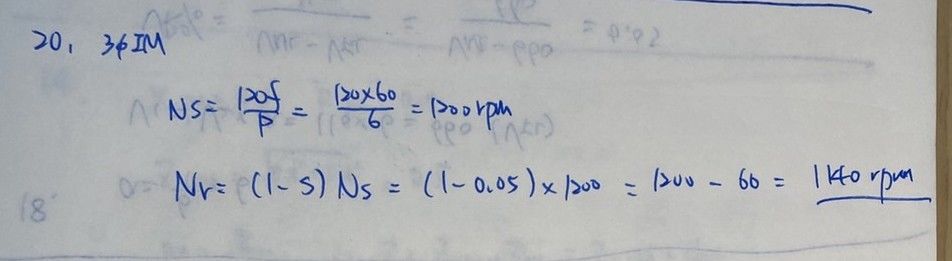 20. 3ϕIM
Ns = 120f/P = 120×60/6 = 1200rpm
Nr = (1-s) Ns = (1-0.05)×1200 = 1200 - 60 = 1140 rpm
18